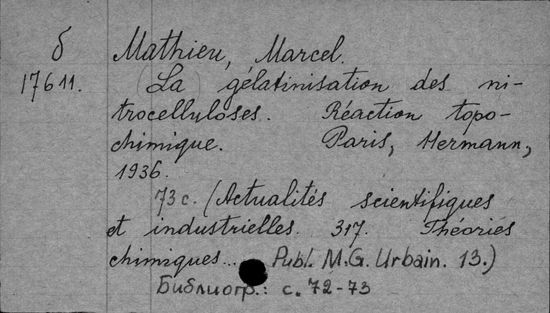 б Mathieu, Marcel.
17611. (La) gélatinisation des ni-
trocelluloses. Réaction topo-
chimique. Paris, Hermann,
1936.
73 c. (Actualités scientifiques
et industrielles. 317. Théories
chimiques... Publ. M.G. Urbain. 13.)
Библиогр.: с. 72-73